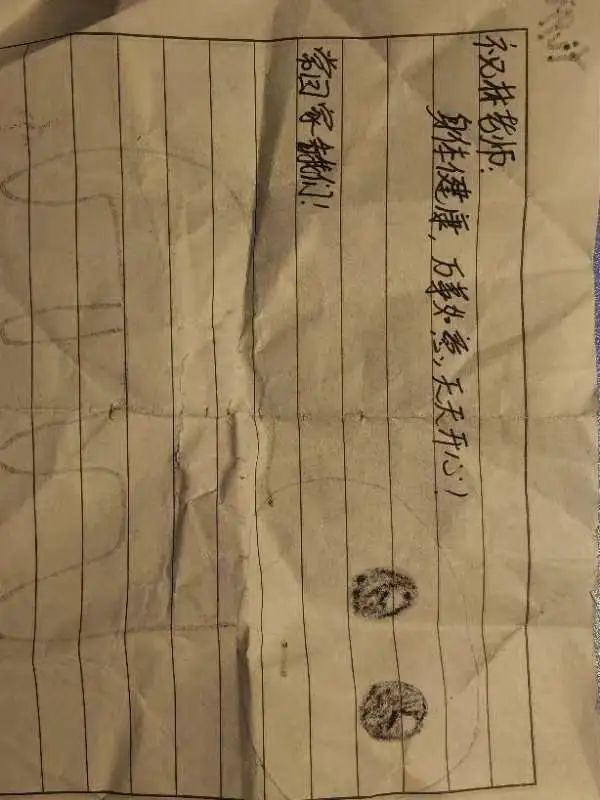 祝林老师:
身体健康,万事如意,天天开心!
常回家看我们!